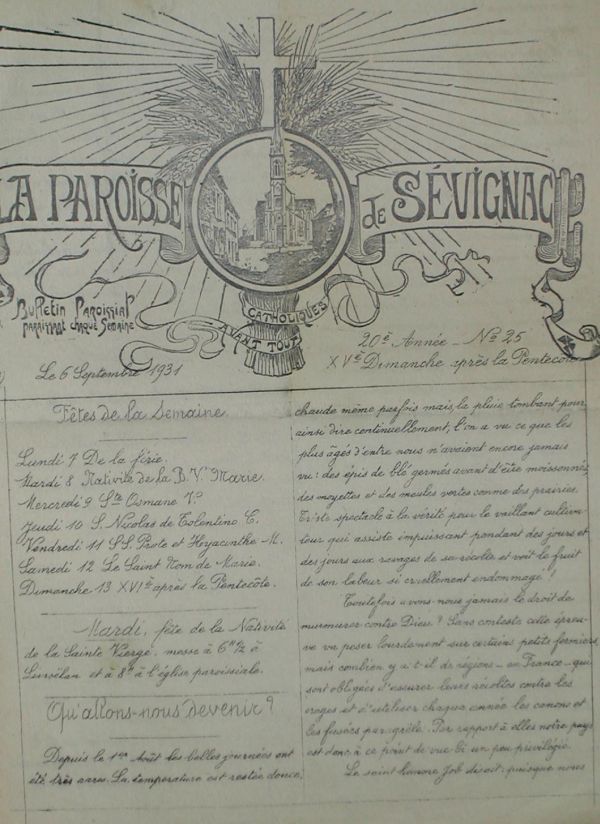 LA PAROISSE de SÉVIGNAC
CATHOLIQUES
AVANT TOUT
Bulletin Paroissial
paraissant chaque Semaine
20e Année – No 25
Le 6 Septembre 1931
XVe Dimanche après la Pentecôte
Fêtes de la Semaine
Lundi 7 De la férie.
Mardi 8 Nativité de la B. V. Marie.
Mercredi 9 Ste Osmane V.
Jeudi 10 S. Nicolas de Tolentino C.
Vendredi 11 S.S. Prote et Hyacinthe M.
Samedi 12 Le Saint Nom de Marie.
Dimanche 13 XVIe après la Pentecôte.
Mardi, fête de la Nativité
de la Sainte Vierge, messe à 6h½ à
et à 8h à l'église paroissiale.
Qu'allons-nous devenir?
Depuis le 1er Août les belles journées ont
été très rares. La température est restée douce,
chaude même parfois mais la pluie tombant pour
ainsi dire continuellement, l'on a vu ce que les
plus âgés d'entre nous n'avaient encore jamais
vu: des épis de blé germés avant d'être moissonnés,
des moyettes et des meules vertes comme des prairies.
Triste spectacle à la vérité pour le vaillant cultiva-
teur qui assiste impuissant pendant des jours et
des jours aux ravages de sa récolte et voit le fruit
de son labeur si cruellement endommagé!
Toutefois avons-nous jamais le droit de
murmurer contre Dieu? Sans conteste cette épreu-
ve va peser lourdement sur certains petits fermiers,
mais combien y a-t-il de régions – en France – qui
sont obligées d'assurer leurs récoltes contre les
orages et d'utiliser chaque année les canons et
les fusées paragrêle. Par rapport à elles notre pays
est donc à ce point de vue là un peu privilégié.
Le saint homme Job disait: puisque nous